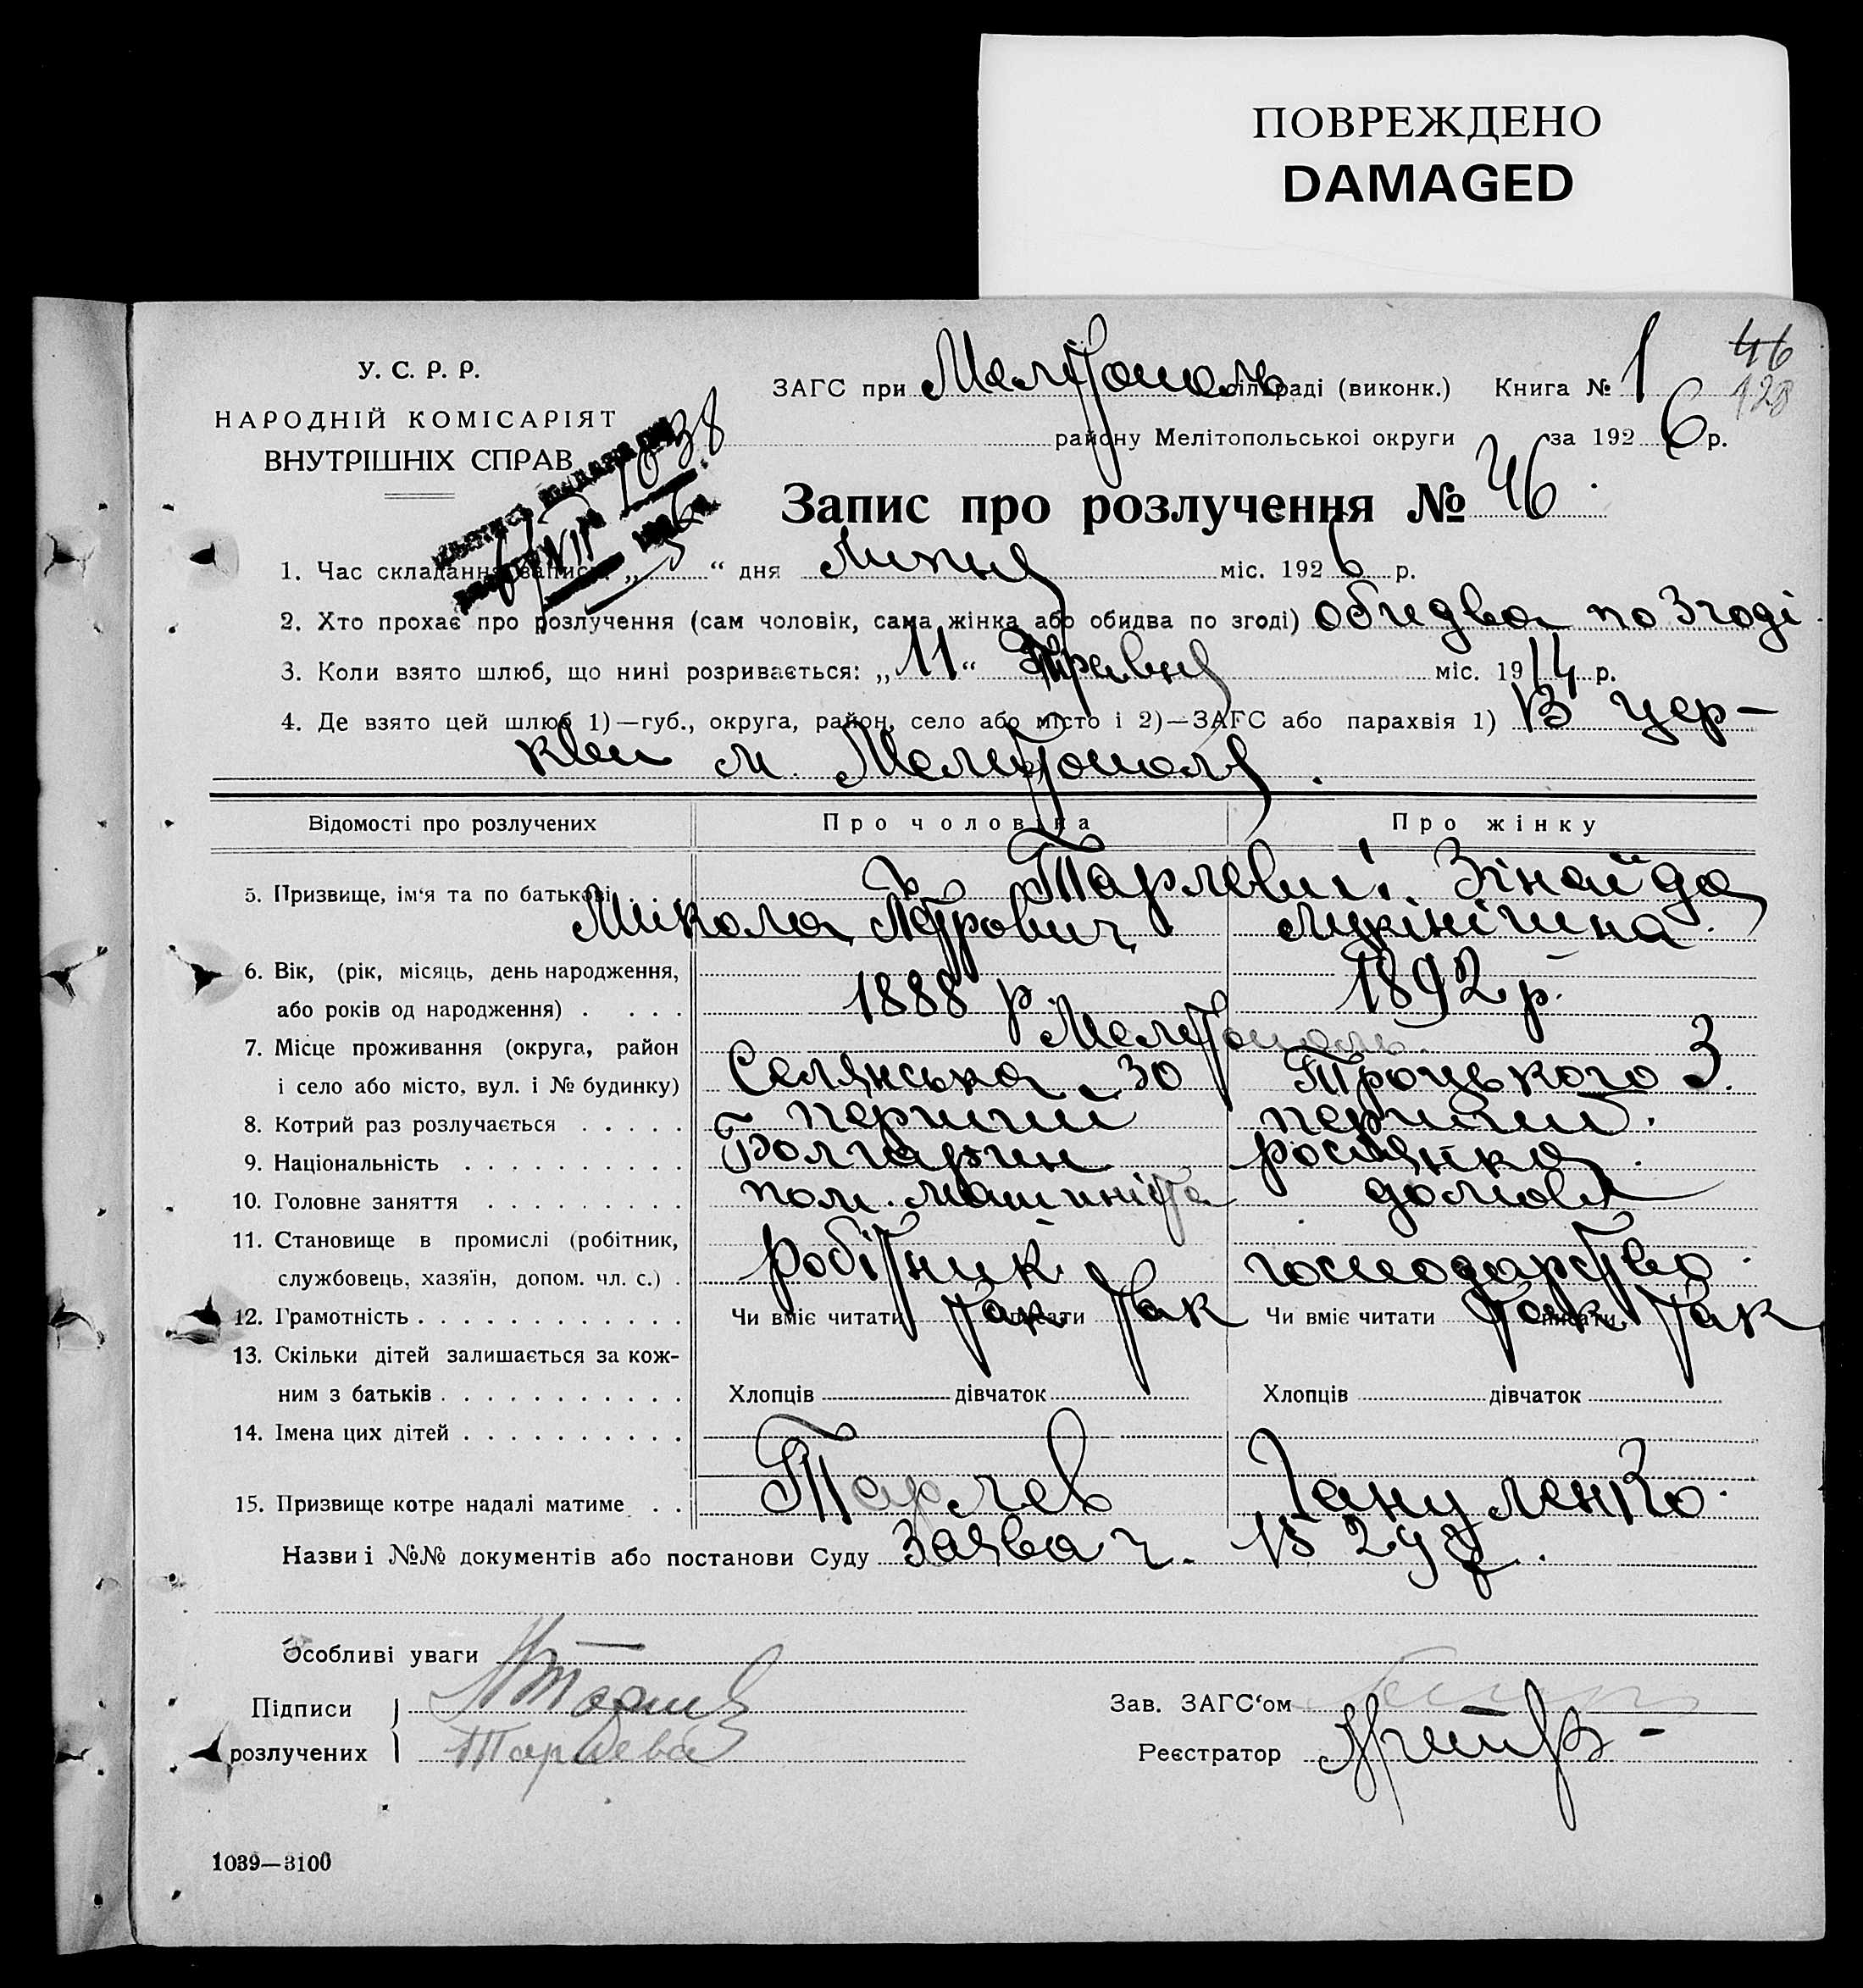 ПОВРЕЖДЕНО
DAMAGED
У. С. Р. Р.
НАРОДНІЙ КОМІСАРІЯТ
ВНУТРІШНІХ СПРАВ
ЗАГС при Мелітополь сільраді (виконк.) Книга № 1
46
128
району Мелітопольскоі округи за 1926 р.
Запис про розлучення № 46
1. Час складання запису „5“ дня Липня міс. 1926 р.
2. Хто прохає про розлучення (сам чоловік, сама жінка або обидва по згоді) обидва по згоді
3. Коли взято шлюб, що нині розривається: „11“ Травня міс. 1914 р.
4. Де взято цей шлюб 1)—губ., округа, район, село або місто і 2)—ЗАГС або парахвія 1) В цер-
кви м. Мелітополя.
Відомості про розлучених Про чоловіка Про жінку
5. Призвище, ім‘я та по батькові Тарлеви: Зінаїда
Микола Петрович
6. Вік, (рік, місяць, день народження,
або років од народження) 1888 р. 1892 р.
7. Місце проживання (округа, район Мелітополь
і село або місто, вул. і № будинку) Селянська 30 Троцького 3.
8. Котрий раз розлучається перший перший.
9. Національність Болгарин росіянка.
10. Головне заняття пом. машиніста домове
11. Становище в промислі (робітник,
службовець, хазяїн, допом. чл. с.) робітник господарство.
12. Грамотність Чи вміє читати так писати так Чи вміє читати так писати так
13. Скільки дітей залишається за кож-
ним з батьків Хлопців дівчаток Хлопців дівчаток
14. Імена цих дітей
15. Призвище котре надалі матиме Тарлев
Назви і №№ документів або постанови Суду Заява ч.
Особливі уваги
Підписи
розлучених
Зав. ЗАГС‘ом
Реєстратор
1039—3100